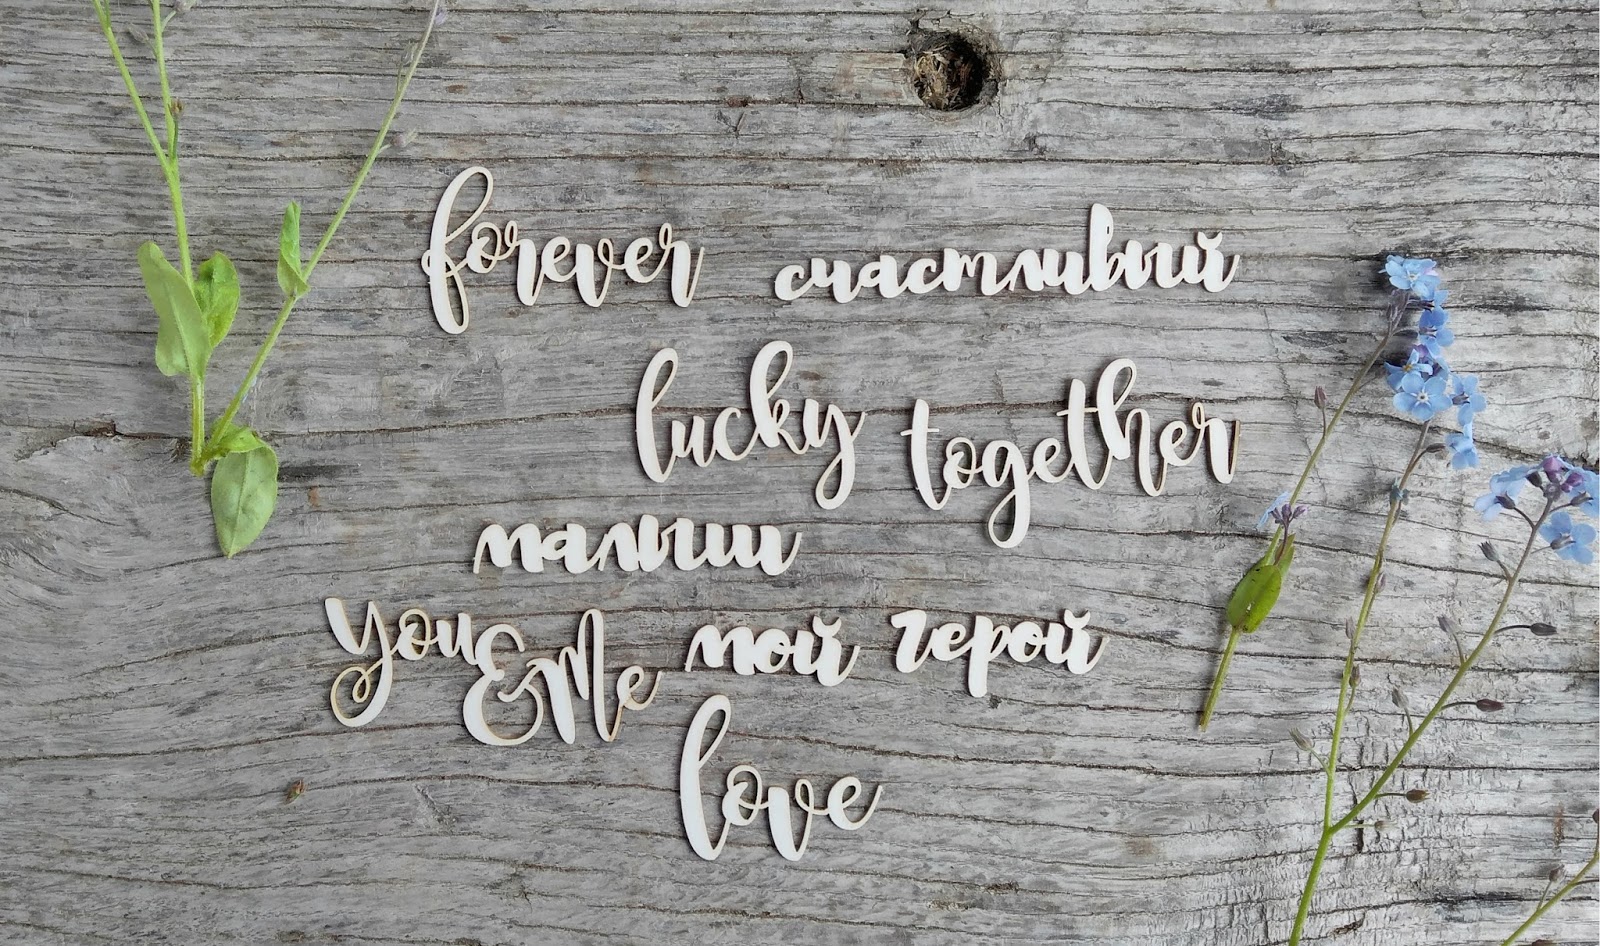 forever счастливый
lucky together
малыш
you & Me мой герой
love